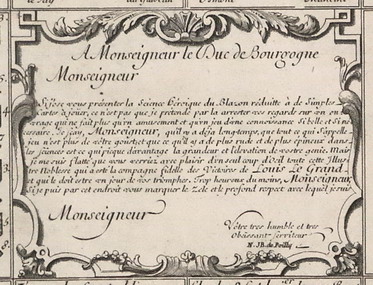 A Monseigneur le Duc de Bourgogne
Monseigneur
Si j'ose vous présenter la Science Héroique du Blazon réduitte à de Simples
Cartes à jouer, ce n'est pas que je prétende par là arrester vos regards sur un ou
vrage qui ne fait plus qu'un amusement et qu'un jeu d'une connoissance Si belle et Si né
cessaire. Je sçay, Monseigneur, qu'il y a déja longtemps, que tout ce qui S'appelle
jeu n'est plus de vôtre goust; et que ce qu'il y a de plus rude et de plus épineux dans
les Sciences est ce qui pique davantage la grandeur et l'élévation de votre génie. Mais
je me suis flatté que vous verriéz avec plaisir d'un seul coup d'Oeil toute cette Illus
tre Noblesse qui a esté la compagne fidelle des Victoires de Louis Le Grand
et qui le doit estre un jour de vos triomphes. Trop heureux du moins, Monseigneur
Si je puis par cet endroit vous marquer le Zele et le profond respect avec lequel je suis
Monseigneur
Vôtre tres humble et tres
Obéissant serviteur
N. J.B. de Poilly